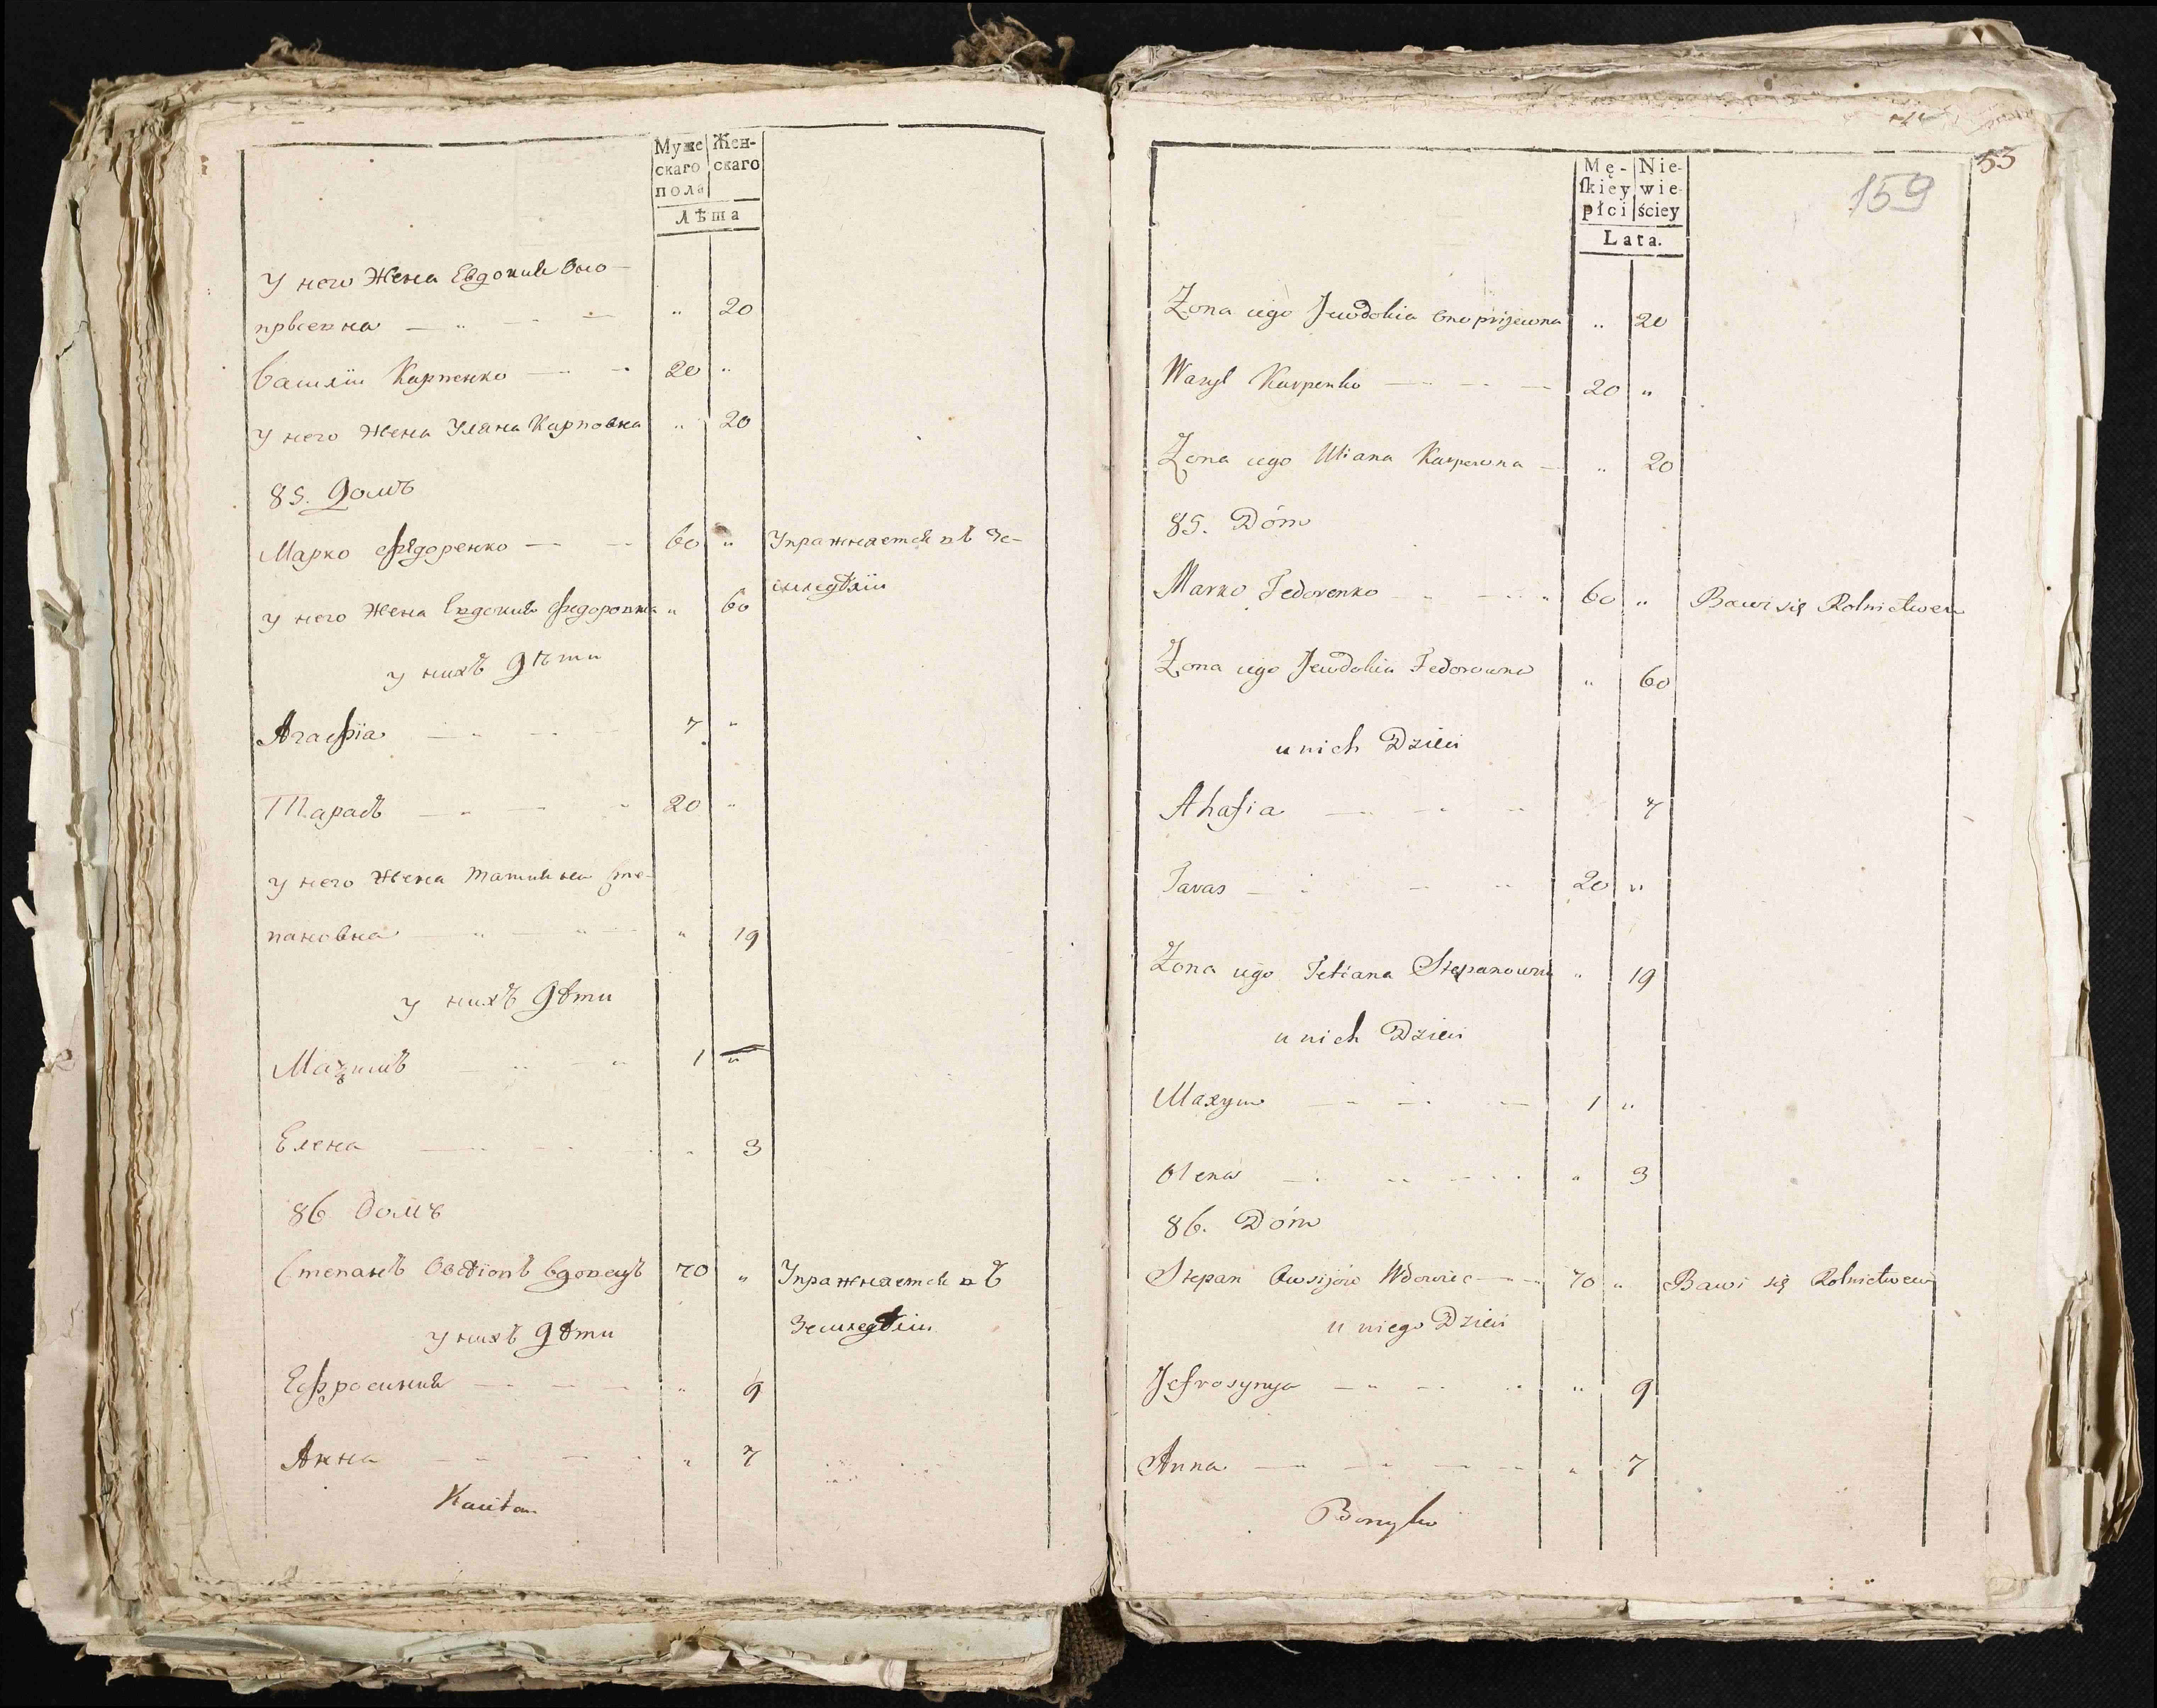 Муже
скаго
пола
Жен-
скаго
Лѣта
У него Жена Евдокия Оно-
пріевна " 20
Василіи Карпенко 20 "
У него Жена Уляна Карповна " 20
85. Домъ
Марко Федоренко 60 " Упражняется въ Зе-
мледѣліи
У него Жена Евдокия Федоровна " 60
у нихъ Дѣти
Агафіа 7 "
Тарасъ 20 "
у него Жена Татияна Сте-
пановна " 19
у нихъ Дѣти
Маѯимъ 1 "
Елена " 3
86 Домъ
Степанъ Овсѣіовъ вдовецъ 70 " Упражняется въ
Земледѣліи
у нихъ Дѣти
Ефросиния " 9
Анна " 7
53
159
Mę-
skiey
płci
Nie-
wie-
ściey
Lata.
Zona iego Jewdokia Onoprijewna " 20
Wasyl Karpenko 20 "
Zona iego Uliana Karpowna " 20
85. Dóm
Marko Fedorenko 60 " Bawi się Rolnictwem
Zona iego Jewdokia Fedorowna " 60
u nich Dzieci
Ahafia 7
Taras 20 "
Zona iego Tetiana Stepanowna " 19
u nich Dzieci
Maxym 1 "
Olena " 3
86. Dóm
Stepan Owsijów Wdowiec 70 " Bawi się Rolnictwem
u niego Dzieci
Jefrosynya " 9
Anna " 7